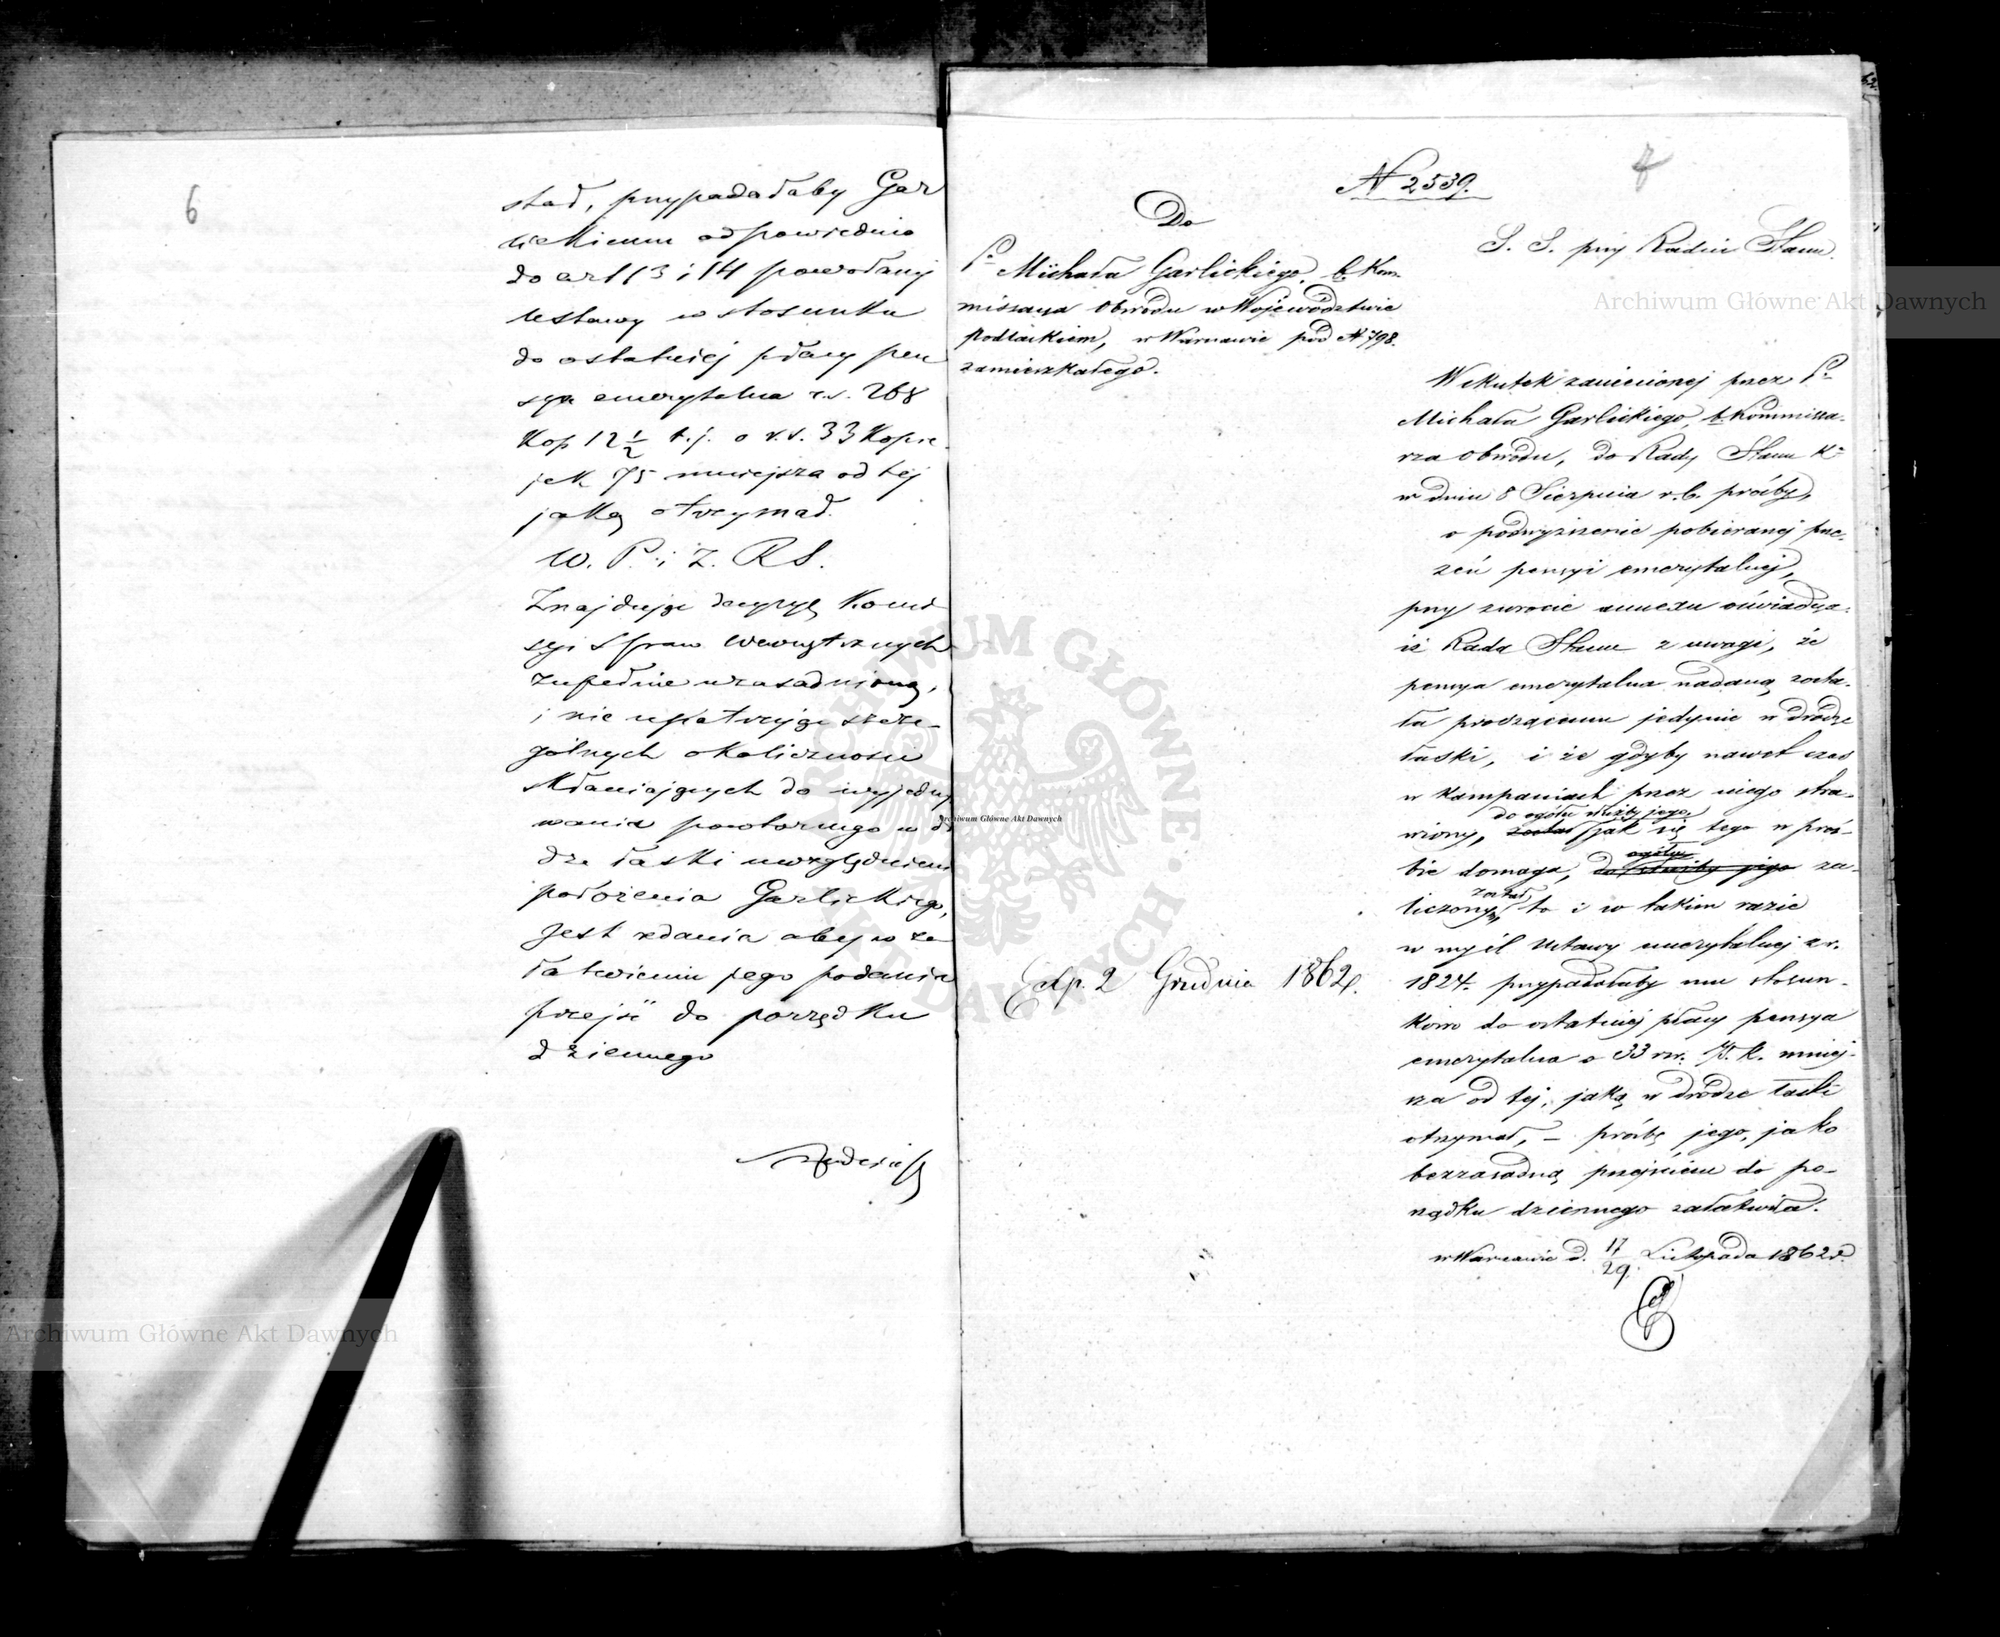 6
stał, przypadałaby Gar
lickiemu odpowiednio
do art 13 i 14 powołanej
Ustawy w stosunku
do ostatniej płacy pen
sya emerytalna r.s. 268
Kop 12 1/2 t.j. o r.s. 33 Kopie
jek 75 mniejsza od tej
jaką otrzymał.
W. P. i Z. R S.
Znajdując decyzyę Komi
syi Spraw Wewnętrznych
zupełnie uzasadnioną,
i nie upatrując szcze-
gólnych okoliczności
skłaniających do wyjedny
wania powtórnego w dro
dze łaski uwzględnienia
położenia Garlickiego,
jest zdania aby w za
łatwieniu jego podania
przejść do porządku
dziennego
N 2539.
7
Do
Pa Michała Garlickiego, b. Kom-
missarza Obwodu w Województwie
Podlaskiem, w Warszawie pod N 798.
zamieszkałego.
Exp. 2 Grudnia 1862 r.
S. S. przy Radzie Stanu.
Wskutek zaniesionej przez Pa
Michała Garlickiego, b. Kommissa-
rza Obwodu, do Rady Stanu K-a
w dniu 8 Sierpnia r.b. prośby,
o podwyższenie pobieranej prze-
zeń pensyi emerytalnej,
przy zwrocie annexu oświadcza,
iż Rada Stanu z uwagi, że
pensya emerytalna nadaną zosta-
ła proszącemu jedynie w drodze
łaski, i że gdyby nawet czas
w kampaniach przez niego stra-
do ogółu służby jego
wiony, został jak się tego w proś-
ogółu
bie domaga, do służby jego za-
został
liczonym, to i w takim razie
w myśl Ustawy emerytalnej z r.
1824. przypadałaby mu stosun-
kowo do ostatniej płacy pensya
emerytalna o 33 rsr. 75. k. mniej-
sza od tej, jaką w drodze łaski
otrzymał, – prośbę jego, jako
bezzasadną przejściem do po-
rządku dziennego załatwiła.
w Warszawie d. 17/29 Listopada 1862 r.
Archiwum Główne Akt Dawnych
Archiwum Główne Akt Dawnych
Archiwum Główne Akt Dawnych
ARCHIWUM GŁÓWNE AKT DAWNYCH